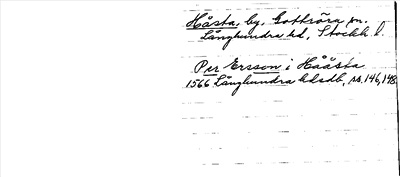 Håsta, by, Gottröra sn.
Långhundra hd, Stockh l.
Per Ersson i Håästa
1566 Långhundra hdsdb, ss. 146, 148